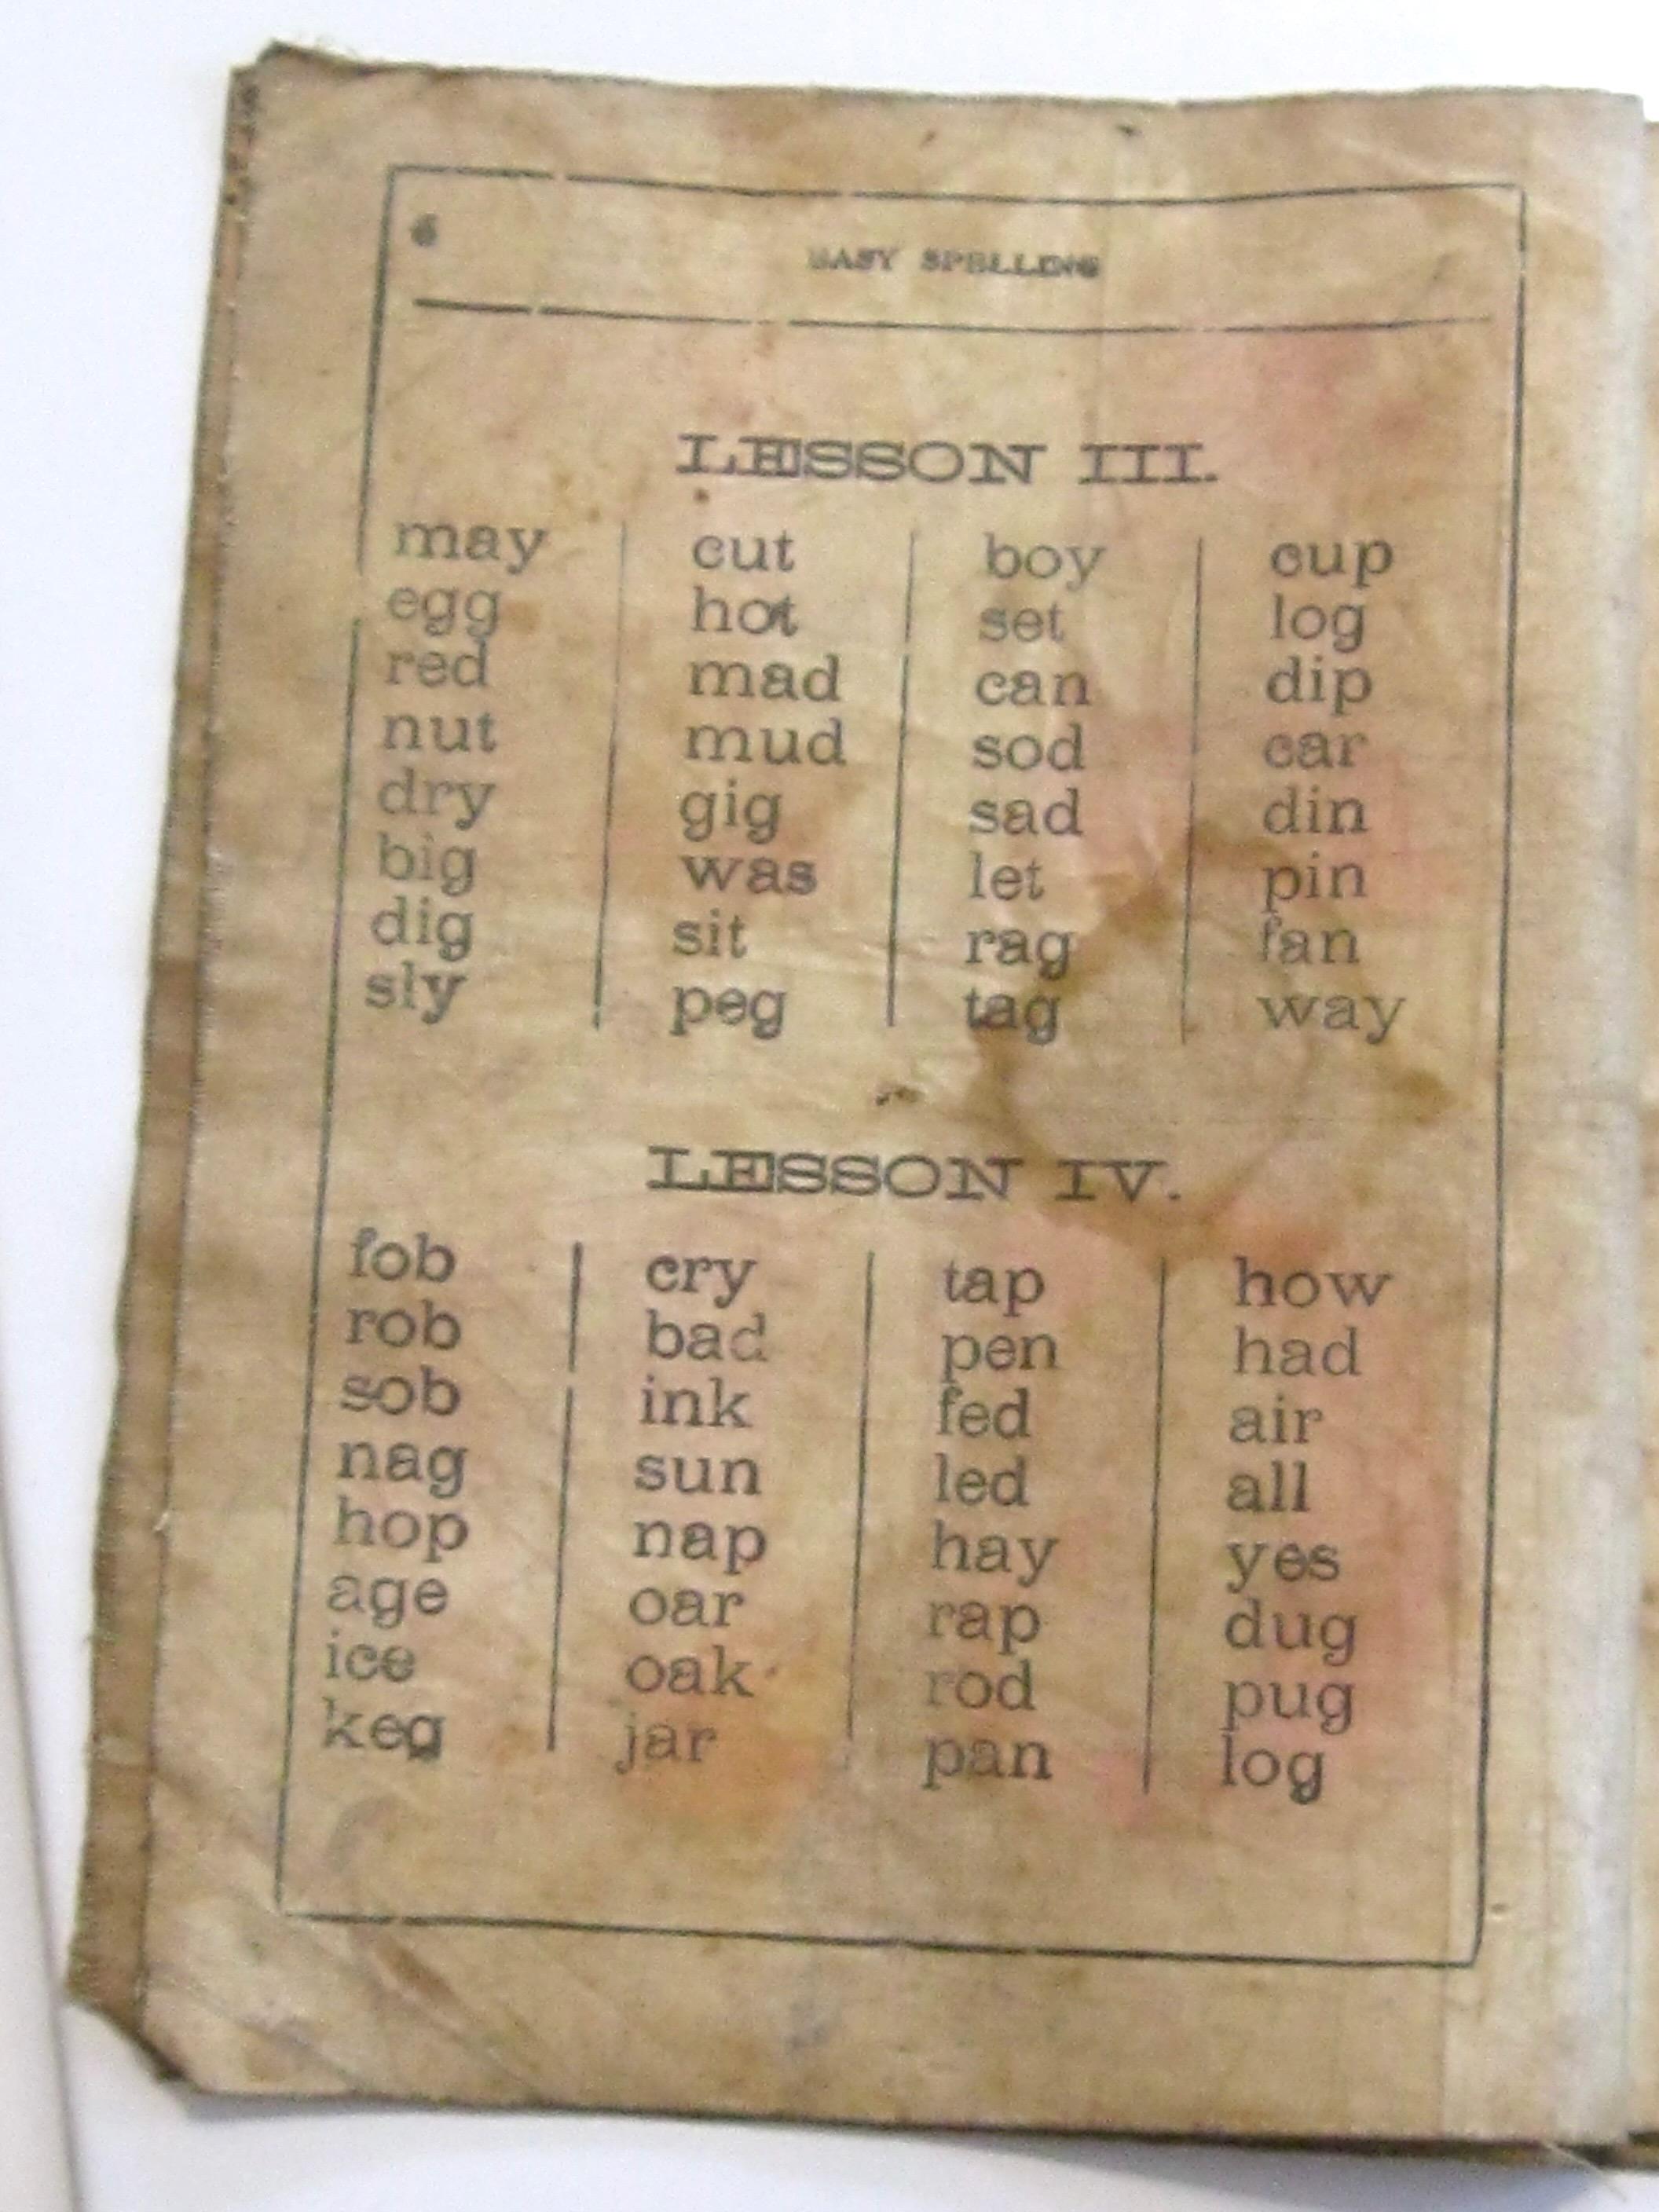 6
EASY SPELLING
LESSON III.
may cut boy cup
egg hot set log
red mad can dip
nut mud sod car
dry gig sad din
big was let pin
dig sit rag fan
sly peg tag way
LESSON IV.
fob cry tap how
rob bad pen had
sob ink fed air
nag sun led all
hop nap hay yes
age oar rap dug
ice oak rod pug
keg jar pan log